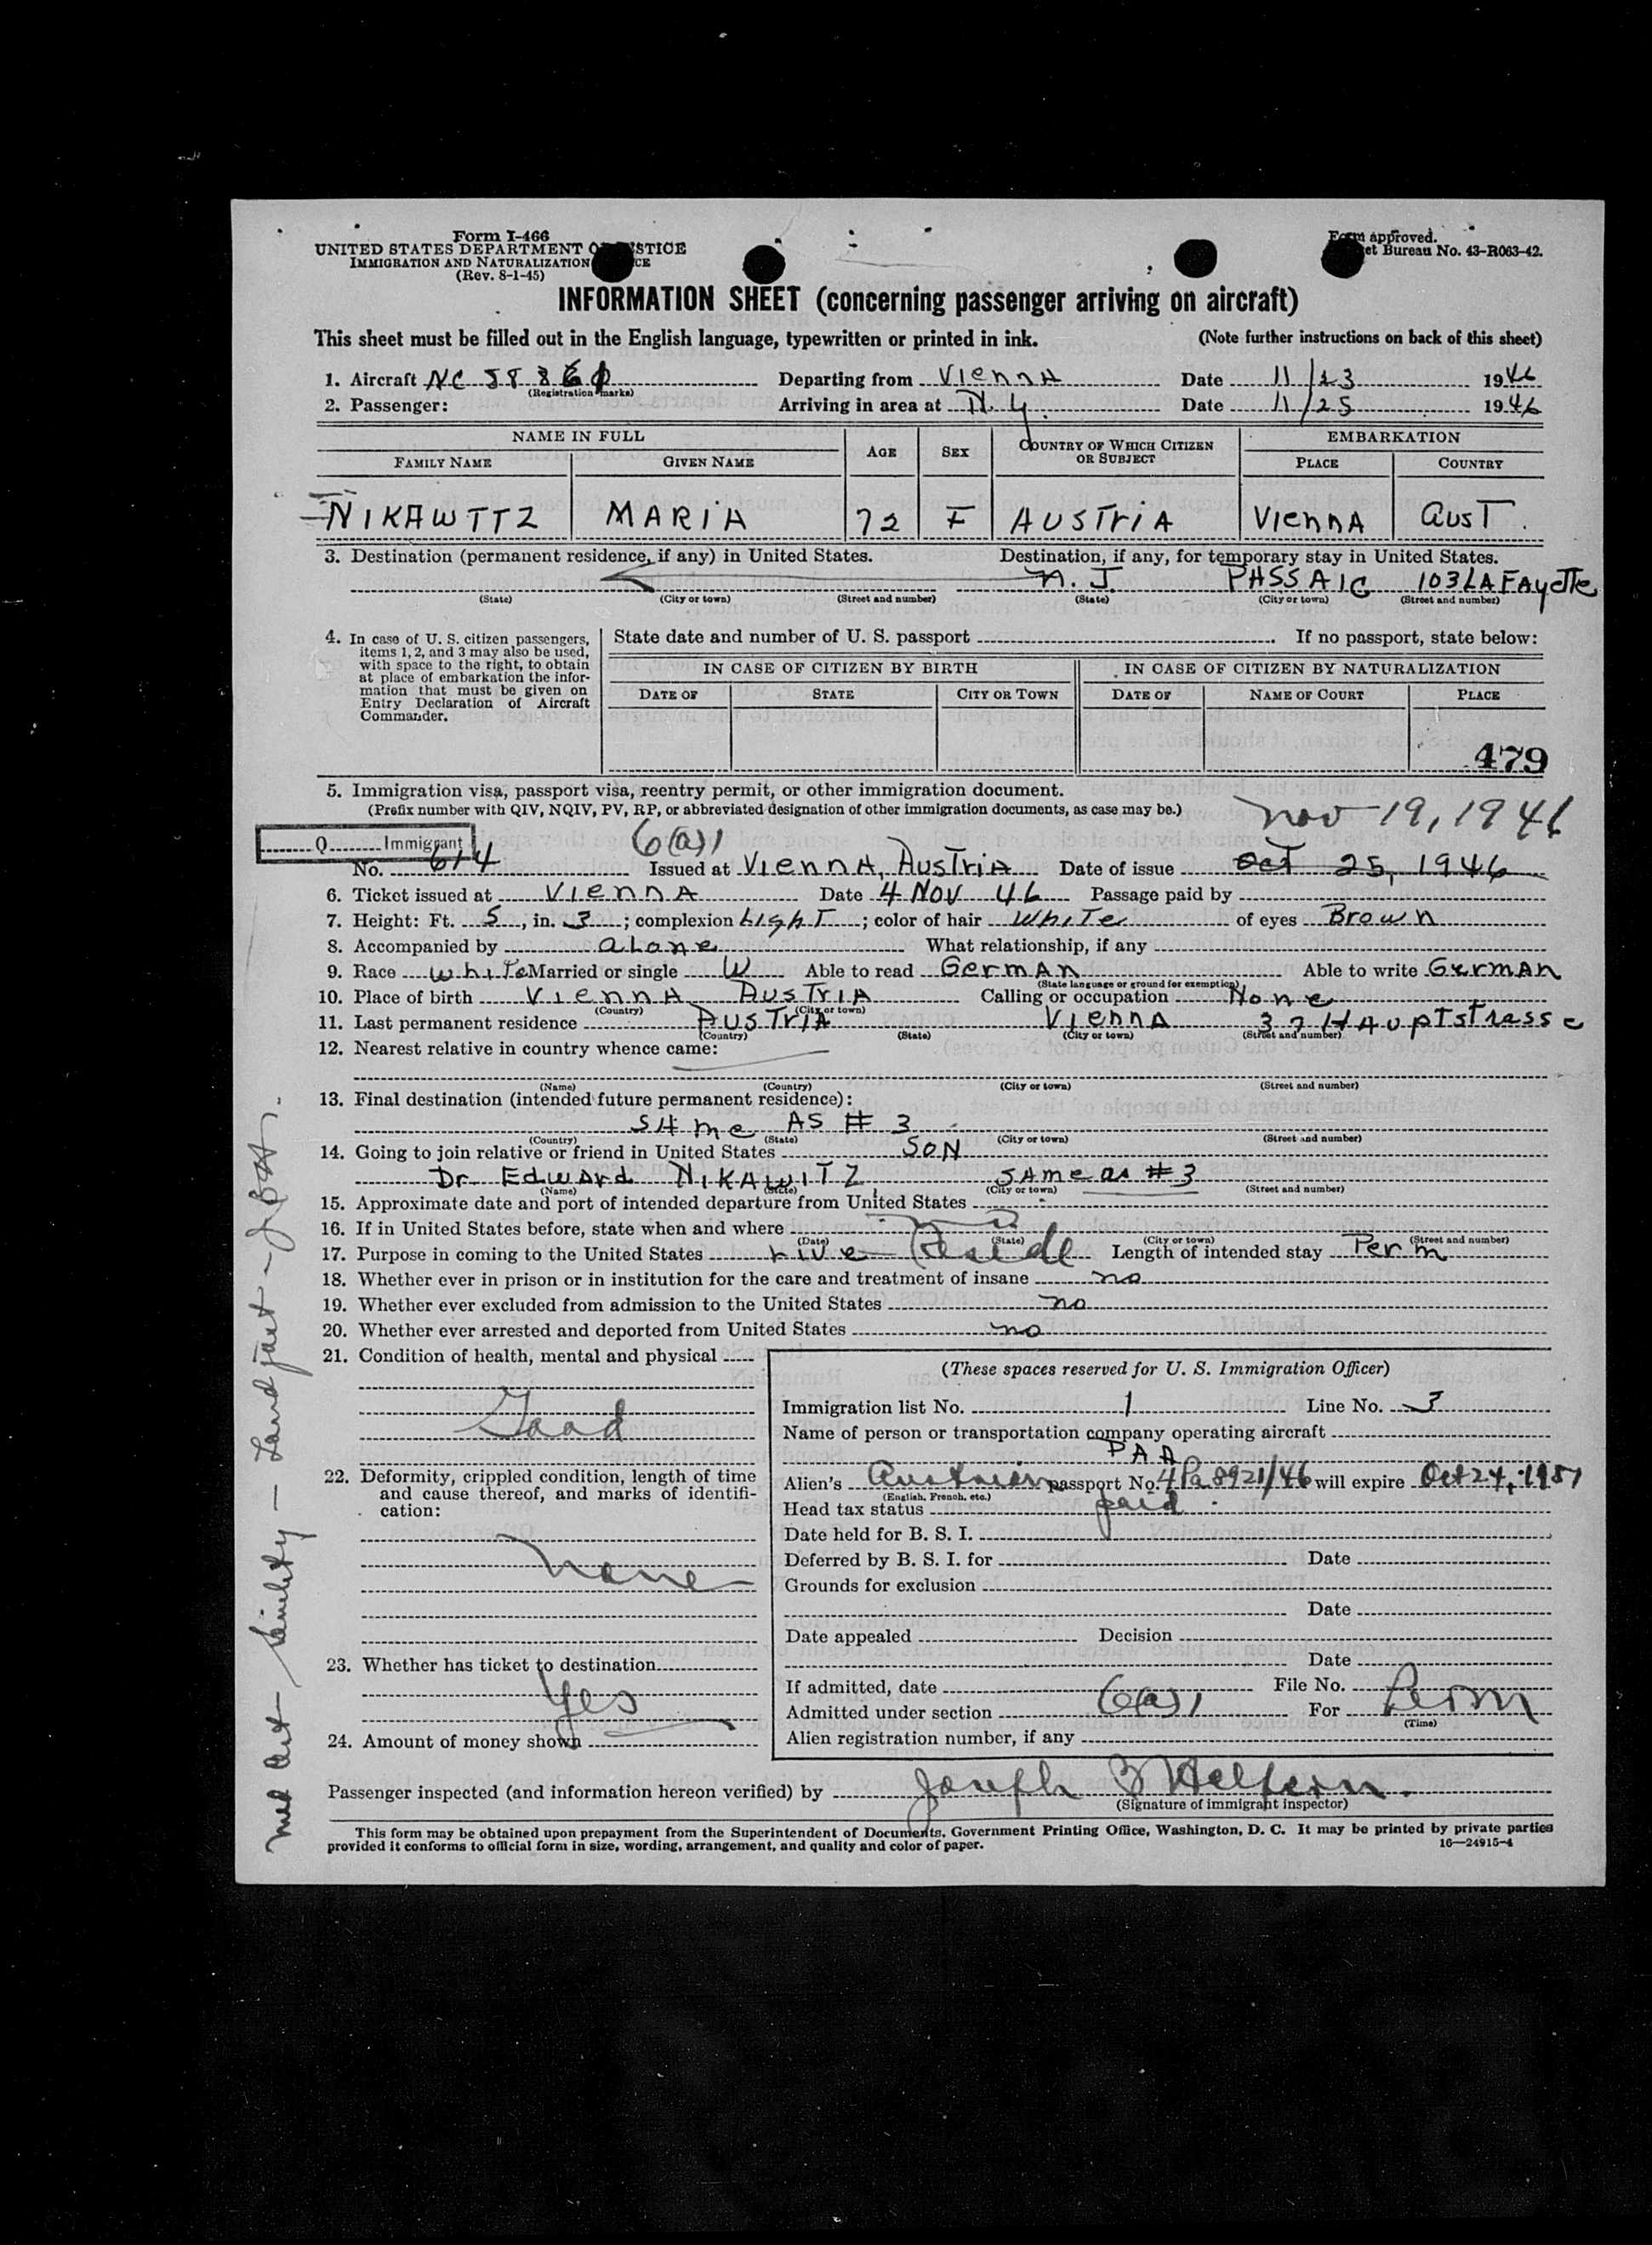 Form I-466
UNITED STATES DEPARTMENT OF JUSTICE
IMMIGRATION AND NATURALIZATION
(Rev. 8-1-45)
Form approved.
Bureau No. 43-R063-42.
INFORMATION SHEET (concerning passenger arriving on aircraft)
This sheet must be filled out in the English language, typewritten or printed in ink. (Note further instructions on back of this sheet)
1. Aircraft NC Departing from VIennA Date 11/23 1946
(Registration marks)
2. Passenger: Arriving in area at N.Y. Date 11/25 1946
NAME IN FULL AGE SEX COUNTRY OF WHICH CITIZEN OR SUBJECT EMBARKATION
FAMILY NAME GIVEN NAME PLACE COUNTRY
NIKAWITZ MARIA 72 F AUSTRIA VIennA AusT.
3. Destination (permanent residence, if any) in United States. Destination, if any, for temporary stay in United States.
N.J. PASSAIC 103 LAFAyeTTe
(State) (City or town) (Street and number) (State) (City or town) (Street and number)
4. In case of U. S. citizen passengers, items 1, 2, and 3 may also be used, with space to the right, to obtain at place of embarkation the information that must be given on Entry Declaration of Aircraft Commander.
State date and number of U. S. passport If no passport, state below:
IN CASE OF CITIZEN BY BIRTH IN CASE OF CITIZEN BY NATURALIZATION
DATE OF STATE CITY OR TOWN DATE OF NAME OF COURT PLACE
479
5. Immigration visa, passport visa, reentry permit, or other immigration document.
(Prefix number with QIV, NQIV, PV, RP, or abbreviated designation of other immigration documents, as case may be.)
Nov 19, 1946
Q Immigrant 6(a)1
No. 614 Issued at VIennA, AusTriA Date of issue Oct 25, 1946
6. Ticket issued at VIennA Date 4 NOV 46 Passage paid by
7. Height: Ft. 5, in. 3; complexion LighT; color of hair WhITe of eyes Brown
8. Accompanied by aLone What relationship, if any
9. Race whiTe Married or single W Able to read GermAn Able to write GermAn
(State language or ground for exemption)
10. Place of birth VIennA AusTrIA Calling or occupation None
(Country) (City or town)
11. Last permanent residence AUSTrIA VIennA 37 HAupTsTrasse
(Country) (State) (City or town) (Street and number)
12. Nearest relative in country whence came:
(Name) (Country) (City or town) (Street and number)
13. Final destination (intended future permanent residence):
SAme AS # 3
(Country) (State) (City or town) (Street and number)
14. Going to join relative or friend in United States SON
Dr. EdwArd NIKAWITZ, SAme as #3
(Name) (State) (City or town) (Street and number)
15. Approximate date and port of intended departure from United States -
16. If in United States before, state when and where no
(Date) (State) (City or town) (Street and number)
17. Purpose in coming to the United States Live Reside Length of intended stay Perm
18. Whether ever in prison or in institution for the care and treatment of insane no
19. Whether ever excluded from admission to the United States no
20. Whether ever arrested and deported from United States no
21. Condition of health, mental and physical
Good
22. Deformity, crippled condition, length of time and cause thereof, and marks of identification:
None
23. Whether has ticket to destination
Yes
24. Amount of money shown
(These spaces reserved for U. S. Immigration Officer)
Immigration list No. 1 Line No. 3
Name of person or transportation company operating aircraft
PAA
Alien's Austrian passport No. 4Pa 8921/46 will expire Oct 24, 1951
(English, French, etc.)
Head tax status paid
Date held for B. S. I.
Deferred by B. S. I. for Date
Grounds for exclusion
Date
Date appealed Decision
Date
If admitted, date File No.
Admitted under section 6(a)1 For Perm
(Time)
Alien registration number, if any
Passenger inspected (and information hereon verified) by Joseph Halfern.
(Signature of immigrant inspector)
This form may be obtained upon prepayment from the Superintendent of Documents, Government Printing Office, Washington, D. C. It may be printed by private parties
provided it conforms to official form in size, wording, arrangement, and quality and color of paper. 16—24915-4
Med Cert - Senility -